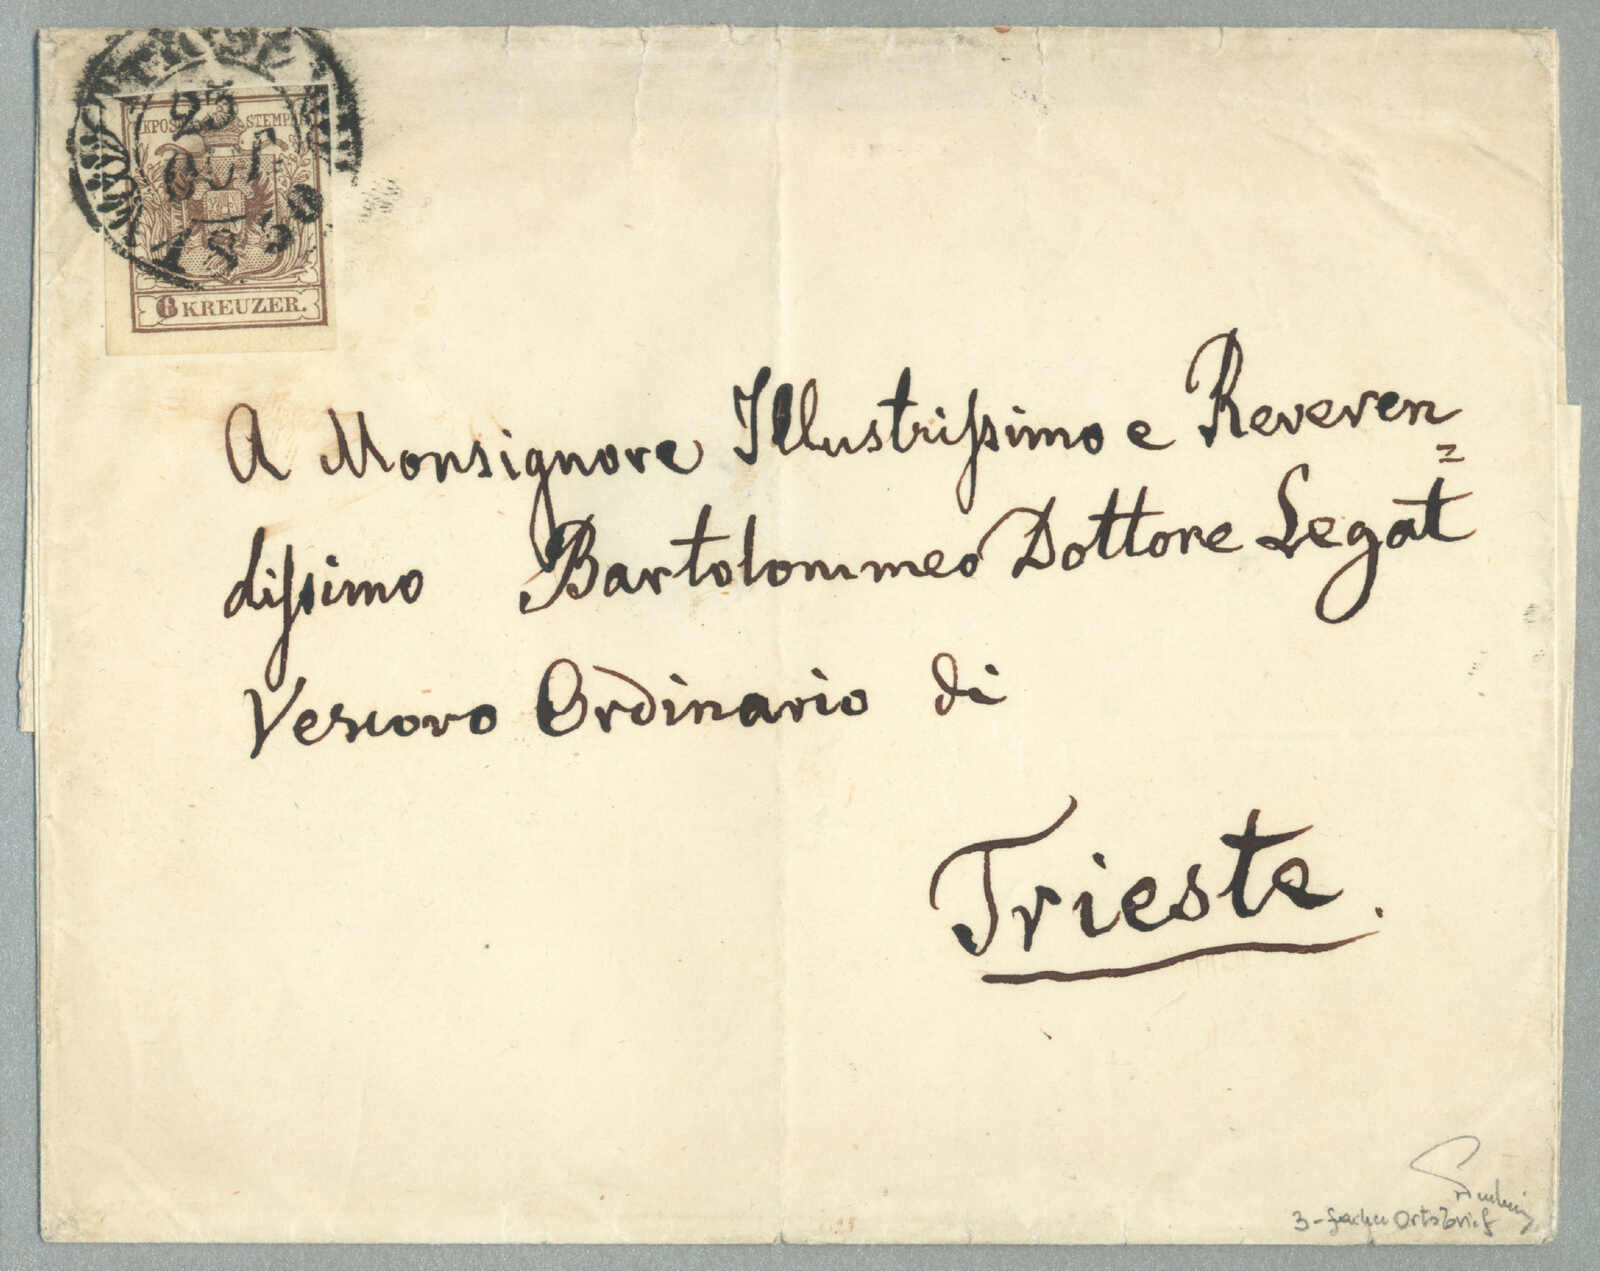 TRIESTE
23
OCT
1850
KKPOST STEMPEL
6 KREUZER.
A Monsignore Illustrissimo e Reveren=
dissimo Bartolommeo Dottore Legat
Vescovo Ordinario di
Trieste.
3-facher Ortsbrief